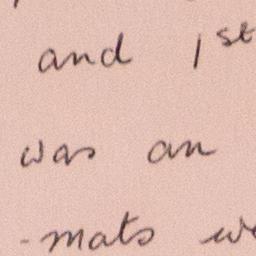 and 1st
was an
-mats we